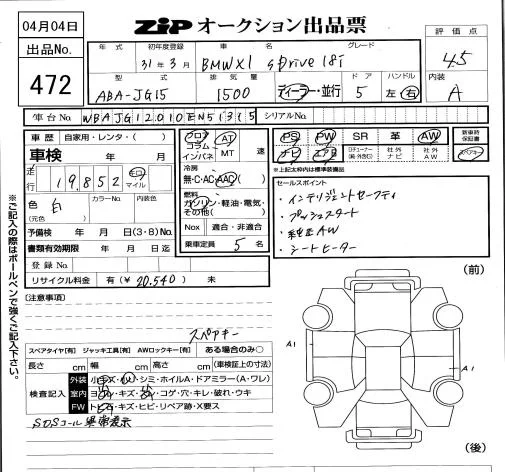 04月04日
ZIP オークション出品票
出品No.
472
年式 初年度登録 車名 グレード
31年3月 BMW X1 sDrive 18i
型式 排気量 ドア ハンドル
ABA-JG15 1500 ディーラー・並行 5 左・右
評価点
4.5
内装
A
車台No. シリアルNo.
車歴 自家用・レンタ・( )
車検 年 月
走行 19,852 キロ マイル
色 白 カラーNo. 内装色
(元色)
予備検 年 月 日(3・8)No.
書類有効期限 年 月 日迄
登録No.
リサイクル料金 有(¥20,540) 未
フロア コラム インパネ AT MT 速
冷房
無・C・AC・AAC
燃料
ガソリン・軽油・電気・その他( )
Nox 適合・非適合
乗車定員 5 名
PS PW SR 革 AW
ナビ
社外ナビ 社外AW
新車時保証書
スペアキー
※上記太枠内は標準装備
セールスポイント
・インテリジェントセーフティ
・プッシュスタート
・純正AW
・シートヒーター
※ご記入の際はボールペンで強くご記入下さい。
[注意事項]
スペアキー
スペアタイヤ[有] ジャッキ工具[有] AWロックキー[有] ある場合のみ○
長さ cm 幅 cm 高さ cm (車検証上の寸法)
検査記入
外装 小キズ・凹・シミ・ホイルA・ドアミラー(A・ワレ)
室内 ヨゴレ・キズ・シミ・コゲ・穴・キレ・破れ・ウキ
FW トビ石・キズ・ヒビ・リペア跡・X要ス
SOSコール異常表示
(前)
A1 A1
(後)